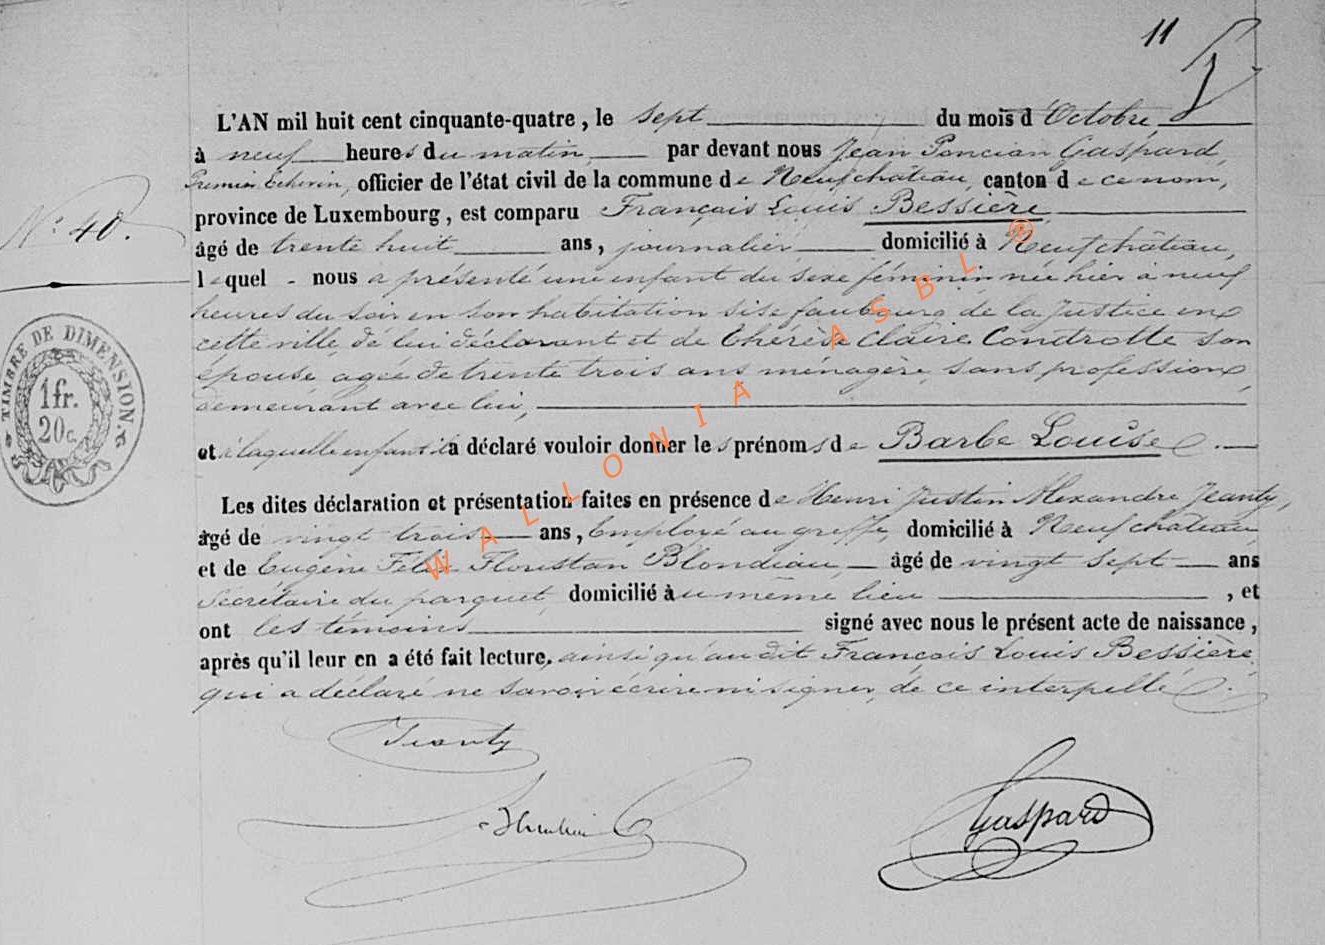 11
L'AN mil huit cent cinquante-quatre, le sept du mois d'Octobre,
à neuf heures du matin, par devant nous Jean Poncian Gaspard,
Premier Echevin, officier de l'état civil de la commune de Neufchâteau, canton de ce nom,
N° 40.
province de Luxembourg, est comparu François Louis Bessière,
âgé de trente huit ans, journalier domicilié à Neufchâteau,
lequel nous a présenté une enfant du sexe féminin née hier à neuf
heures du soir en son habitation sise faubourg de la Justice en
cette ville, de lui déclarant et de Thérèse Claire Condrotte son
épouse, agée de trente trois ans ménagère, sans profession,
demeurant avec lui,
et à laquelle enfant il a déclaré vouloir donner les prénoms de Barbe Louise
Les dites déclaration et présentation faites en présence de Henri Justin Alexandre Jeanty,
âgé de vingt trois ans, Employé au greffe, domicilié à Neufchateau
et de Eugène Félix Floristan Blondiau, âgé de vingt sept ans
Secrétaire du parquet, domicilié au même lieu, et
ont les témoins signé avec nous le présent acte de naissance,
après qu'il leur en a été fait lecture, ainsi qu'au dit François Louis Bessière
qui a déclaré ne savoir écrire ni signer, de ce interpellé.
Jeanty
Gaspard
TIMBRE DE DIMENSION.
1 fr.
20 c.
WALLONIA ASBL ®